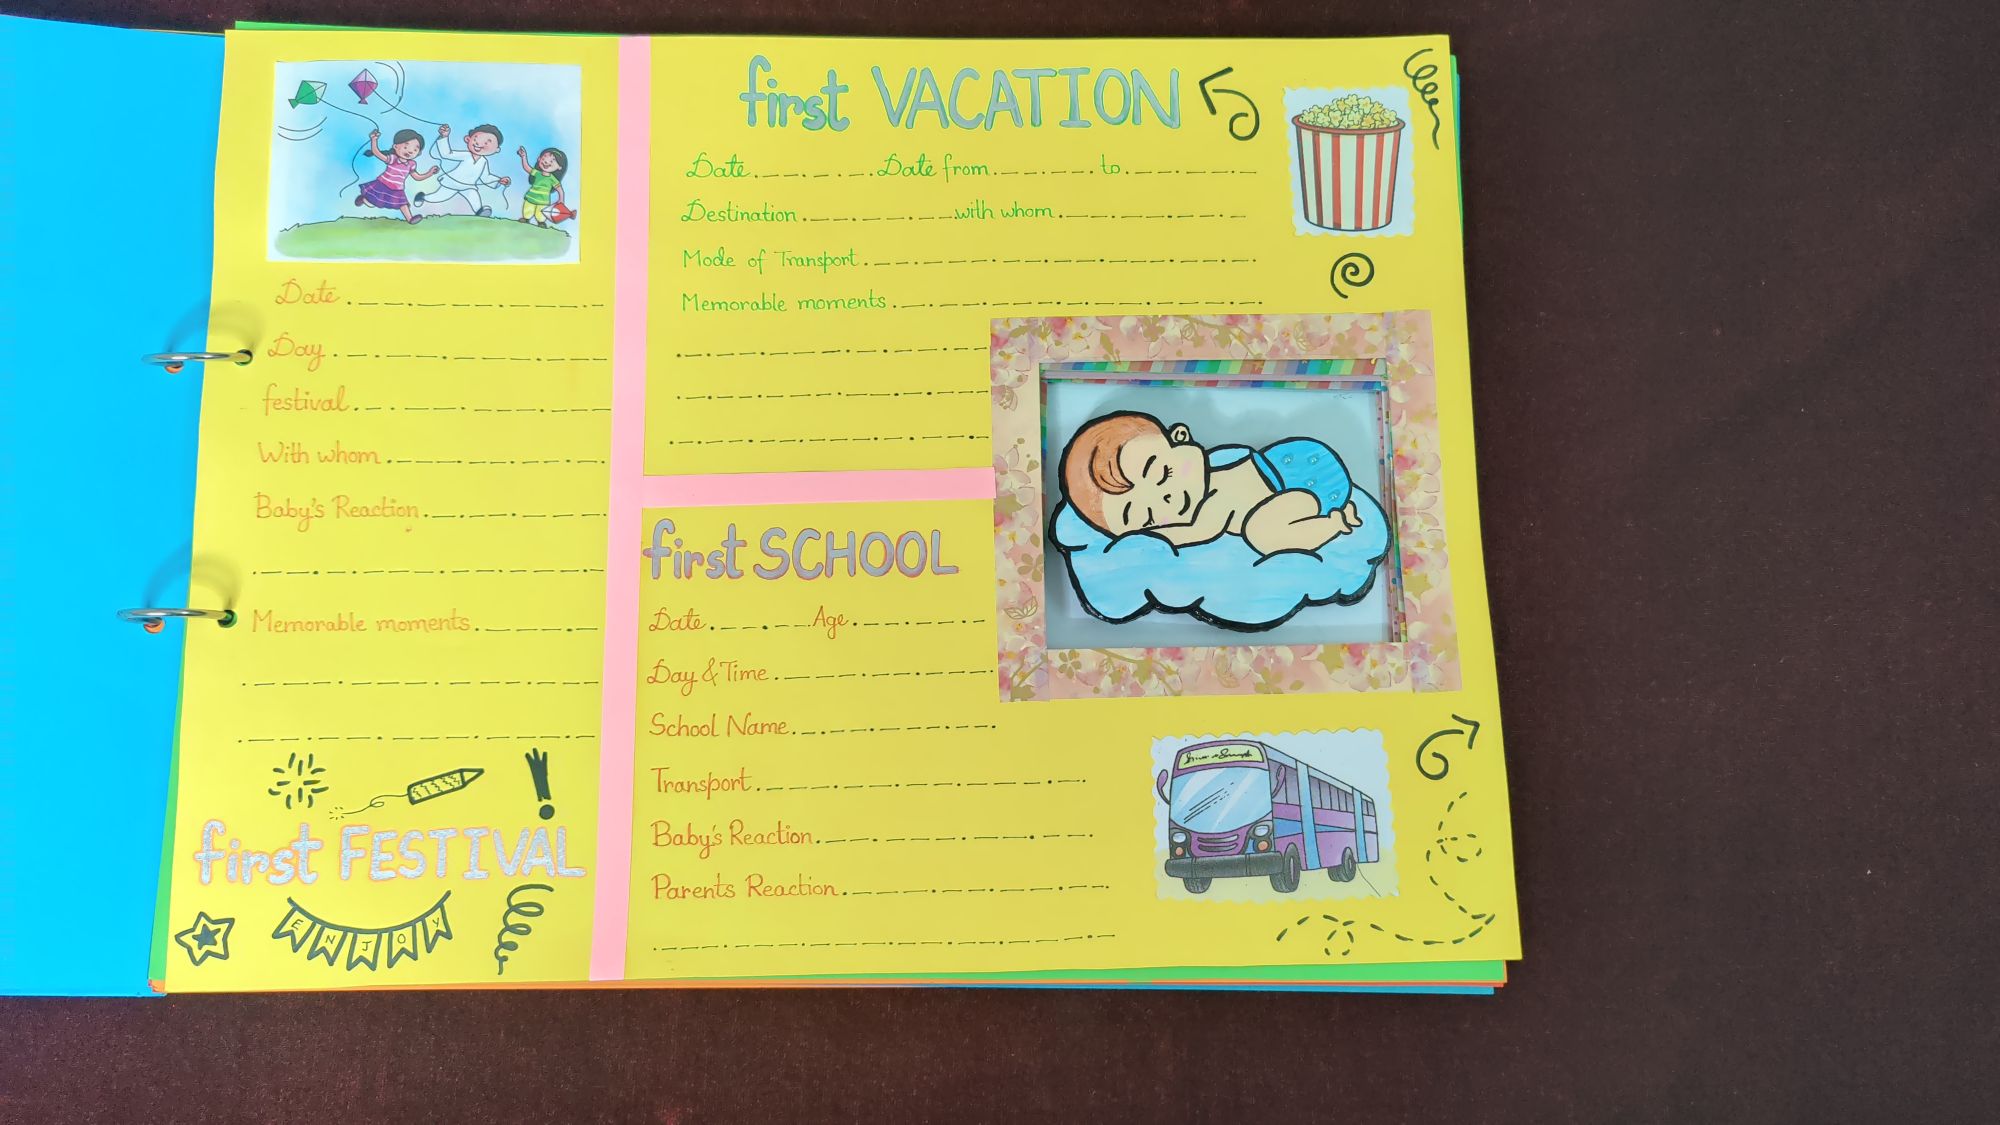 Date
Day
festival
With whom
Baby's Reaction
Memorable moments
first FESTIVAL
ENJOY
first VACATION
Date Date from to
Destination with whom
Mode of Transport
Memorable moments
first SCHOOL
Date Age
Day & Time
School Name
Transport
Baby's Reaction
Parents Reaction